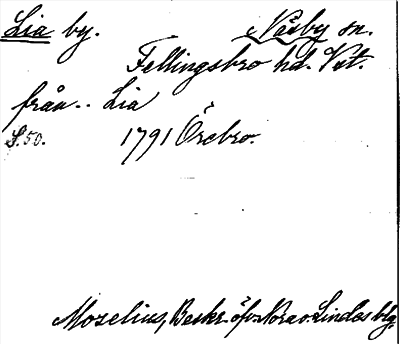 Lia by. Näsby sn.
Fellingsbro hd. Vstm.
från.. Lia
S. 50. 1791 Örebro.
Moselius, Beskr. öfv. Nora o. Lindes blg.